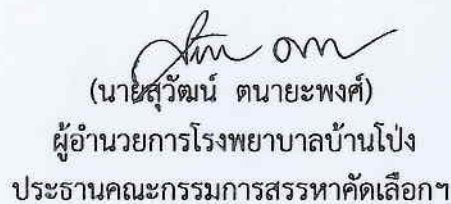 (นายสุวัฒน์ ตนายะพงศ์)
ผู้อำนวยการโรงพยาบาลบ้านโป่ง
ประธานคณะกรรมการสรรหาคัดเลือกฯ